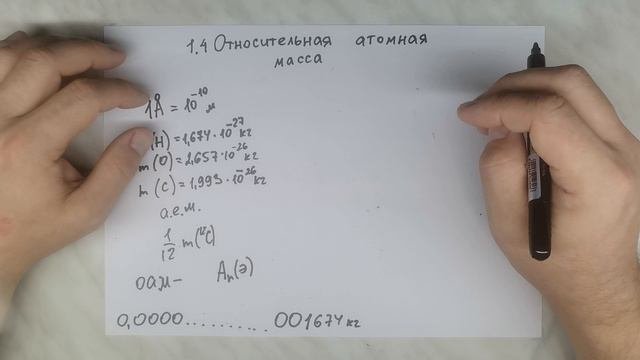 1.4 Относительная атомная
масса
1Å = 10⁻¹⁰ м
(H) = 1,674 · 10⁻²⁷ кг
m (O) = 2,657 · 10⁻²⁶ кг
m (C) = 1,993 · 10⁻²⁶ кг
а.е.м.
1/12 m(¹²C)
оам – Ar(э)
0,0000.......... 001674 кг